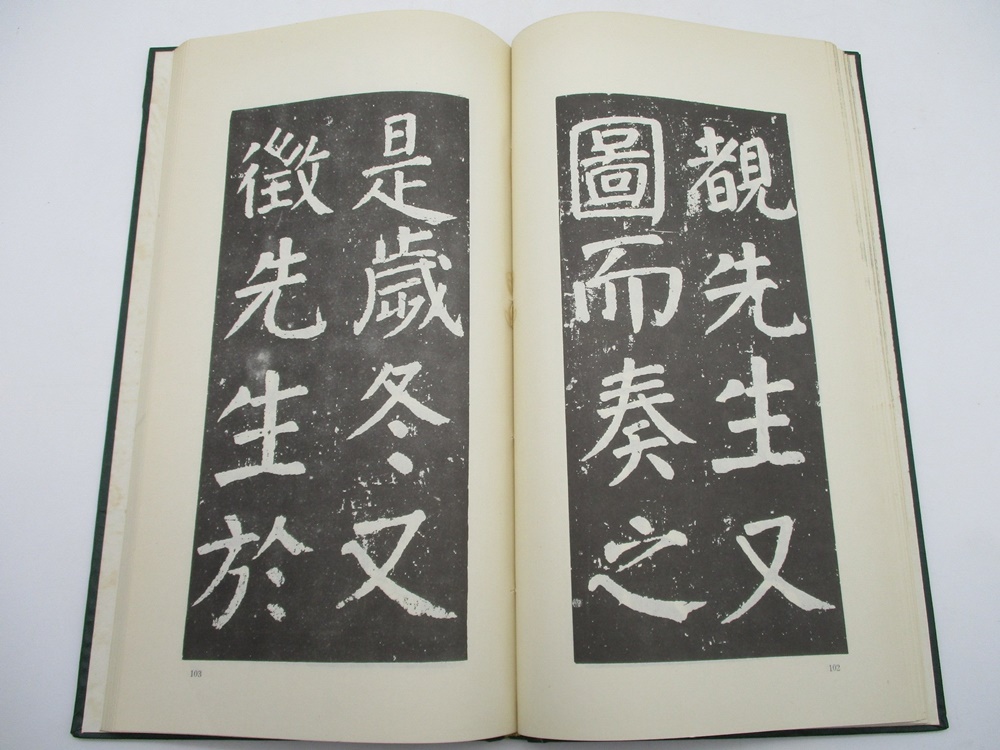 覩先生又
圖而奏之
102
是歲冬又
徵先生於
103